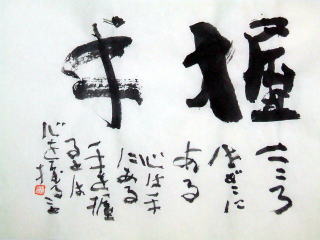 握手
こころ
はどこに
ある
心は手
にある
手を握
るとは
心を握ること